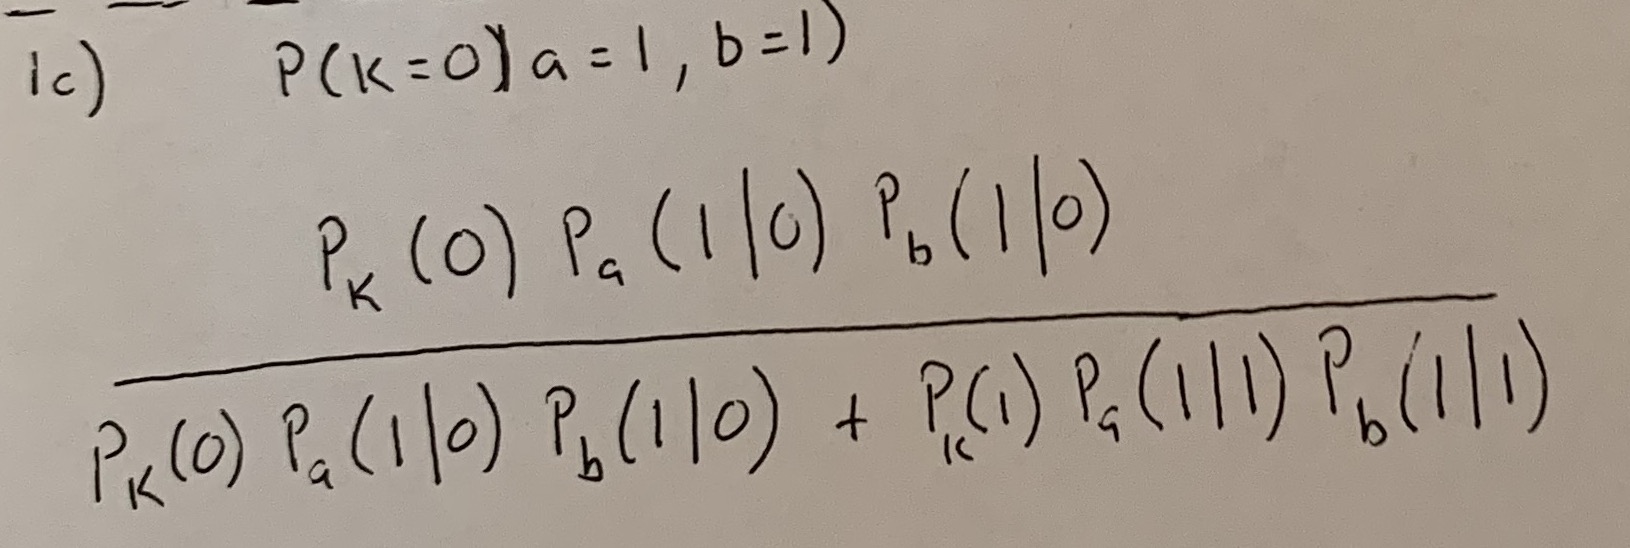 1c) P(K=0|a=1, b=1)
P_K(0) P_a(1|0) P_b(1|0)
P_K(0) P_a(1|0) P_b(1|0) + P_K(1) P_a(1|1) P_b(1|1)